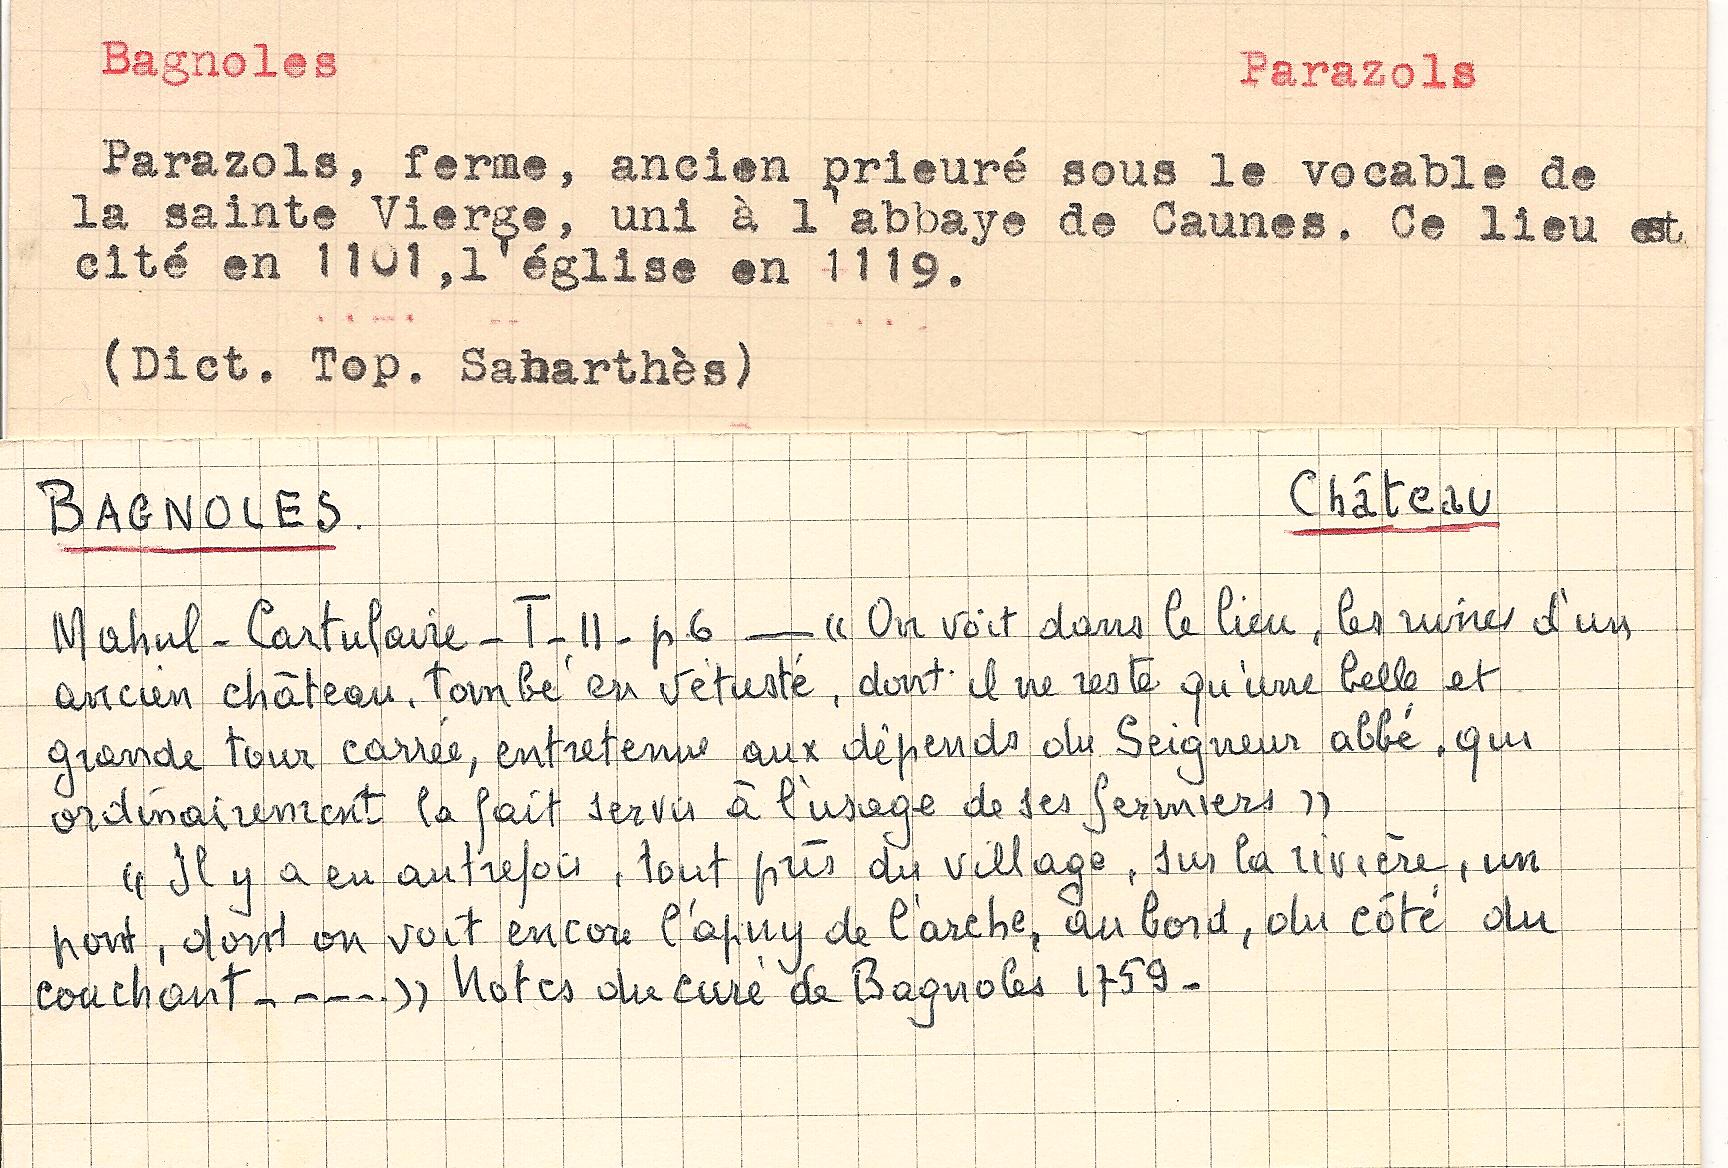 Bagnoles Parazols
Parazols, ferme, ancien prieuré sous le vocable de
la sainte Vierge, uni à l'abbaye de Caunes. Ce lieu est
cité en 1101,l'église en 1119.
(Dict. Top. Sabarthès)
BAGNOLES. Château
Mahul - Cartulaire - T. II - p 6 — « On voit dans le lieu, les ruines d'un
ancien château, tombé en vétusté, dont il ne reste qu'une belle et
grande tour carrée, entretenue aux dépends du Seigneur abbé, qui
ordinairement la fait servir à l'usage de ses fermiers »
« Il y a eu autrefois, tout près du village, sur la rivière, un
pont, dont on voit encore l'apuy de l'arche, au bord, du côté du
couchant - - - - - » Notes du curé de Bagnoles 1759 -